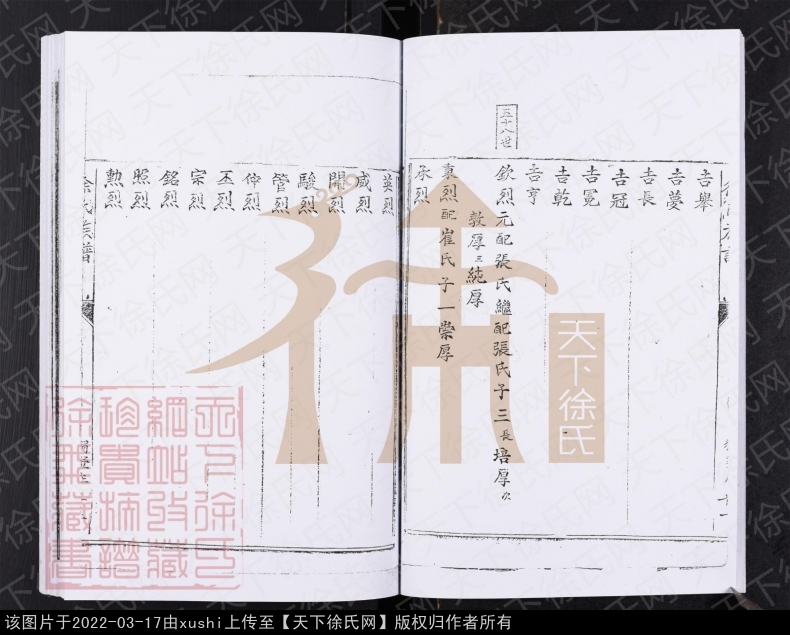 吉舉
吉夢
吉長
吉冠
吉冕
吉乾
吉亨
五十八世
欽烈 元配張氏繼配張氏子三 長 培厚 次
敦厚 三 純厚
重烈 配崔氏子一崇厚
承烈
英烈
威烈
開烈
駿烈
管烈
仲烈
丕烈
宗烈
銘烈
照烈
勲烈
徐氏族譜
天下徐氏
天下徐氏网
该图片于2022-03-17由xushi上传至【天下徐氏网】版权归作者所有